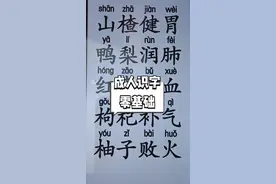 shān zhā jiàn wèi
山楂健胃
yā lí rùn fèi
鸭梨润肺
hóng zǎo bǔ xuè
红 血
成人识字
零基础
gǒu qì
枸杞补气
yòu zǐ bài huǒ
柚子败火